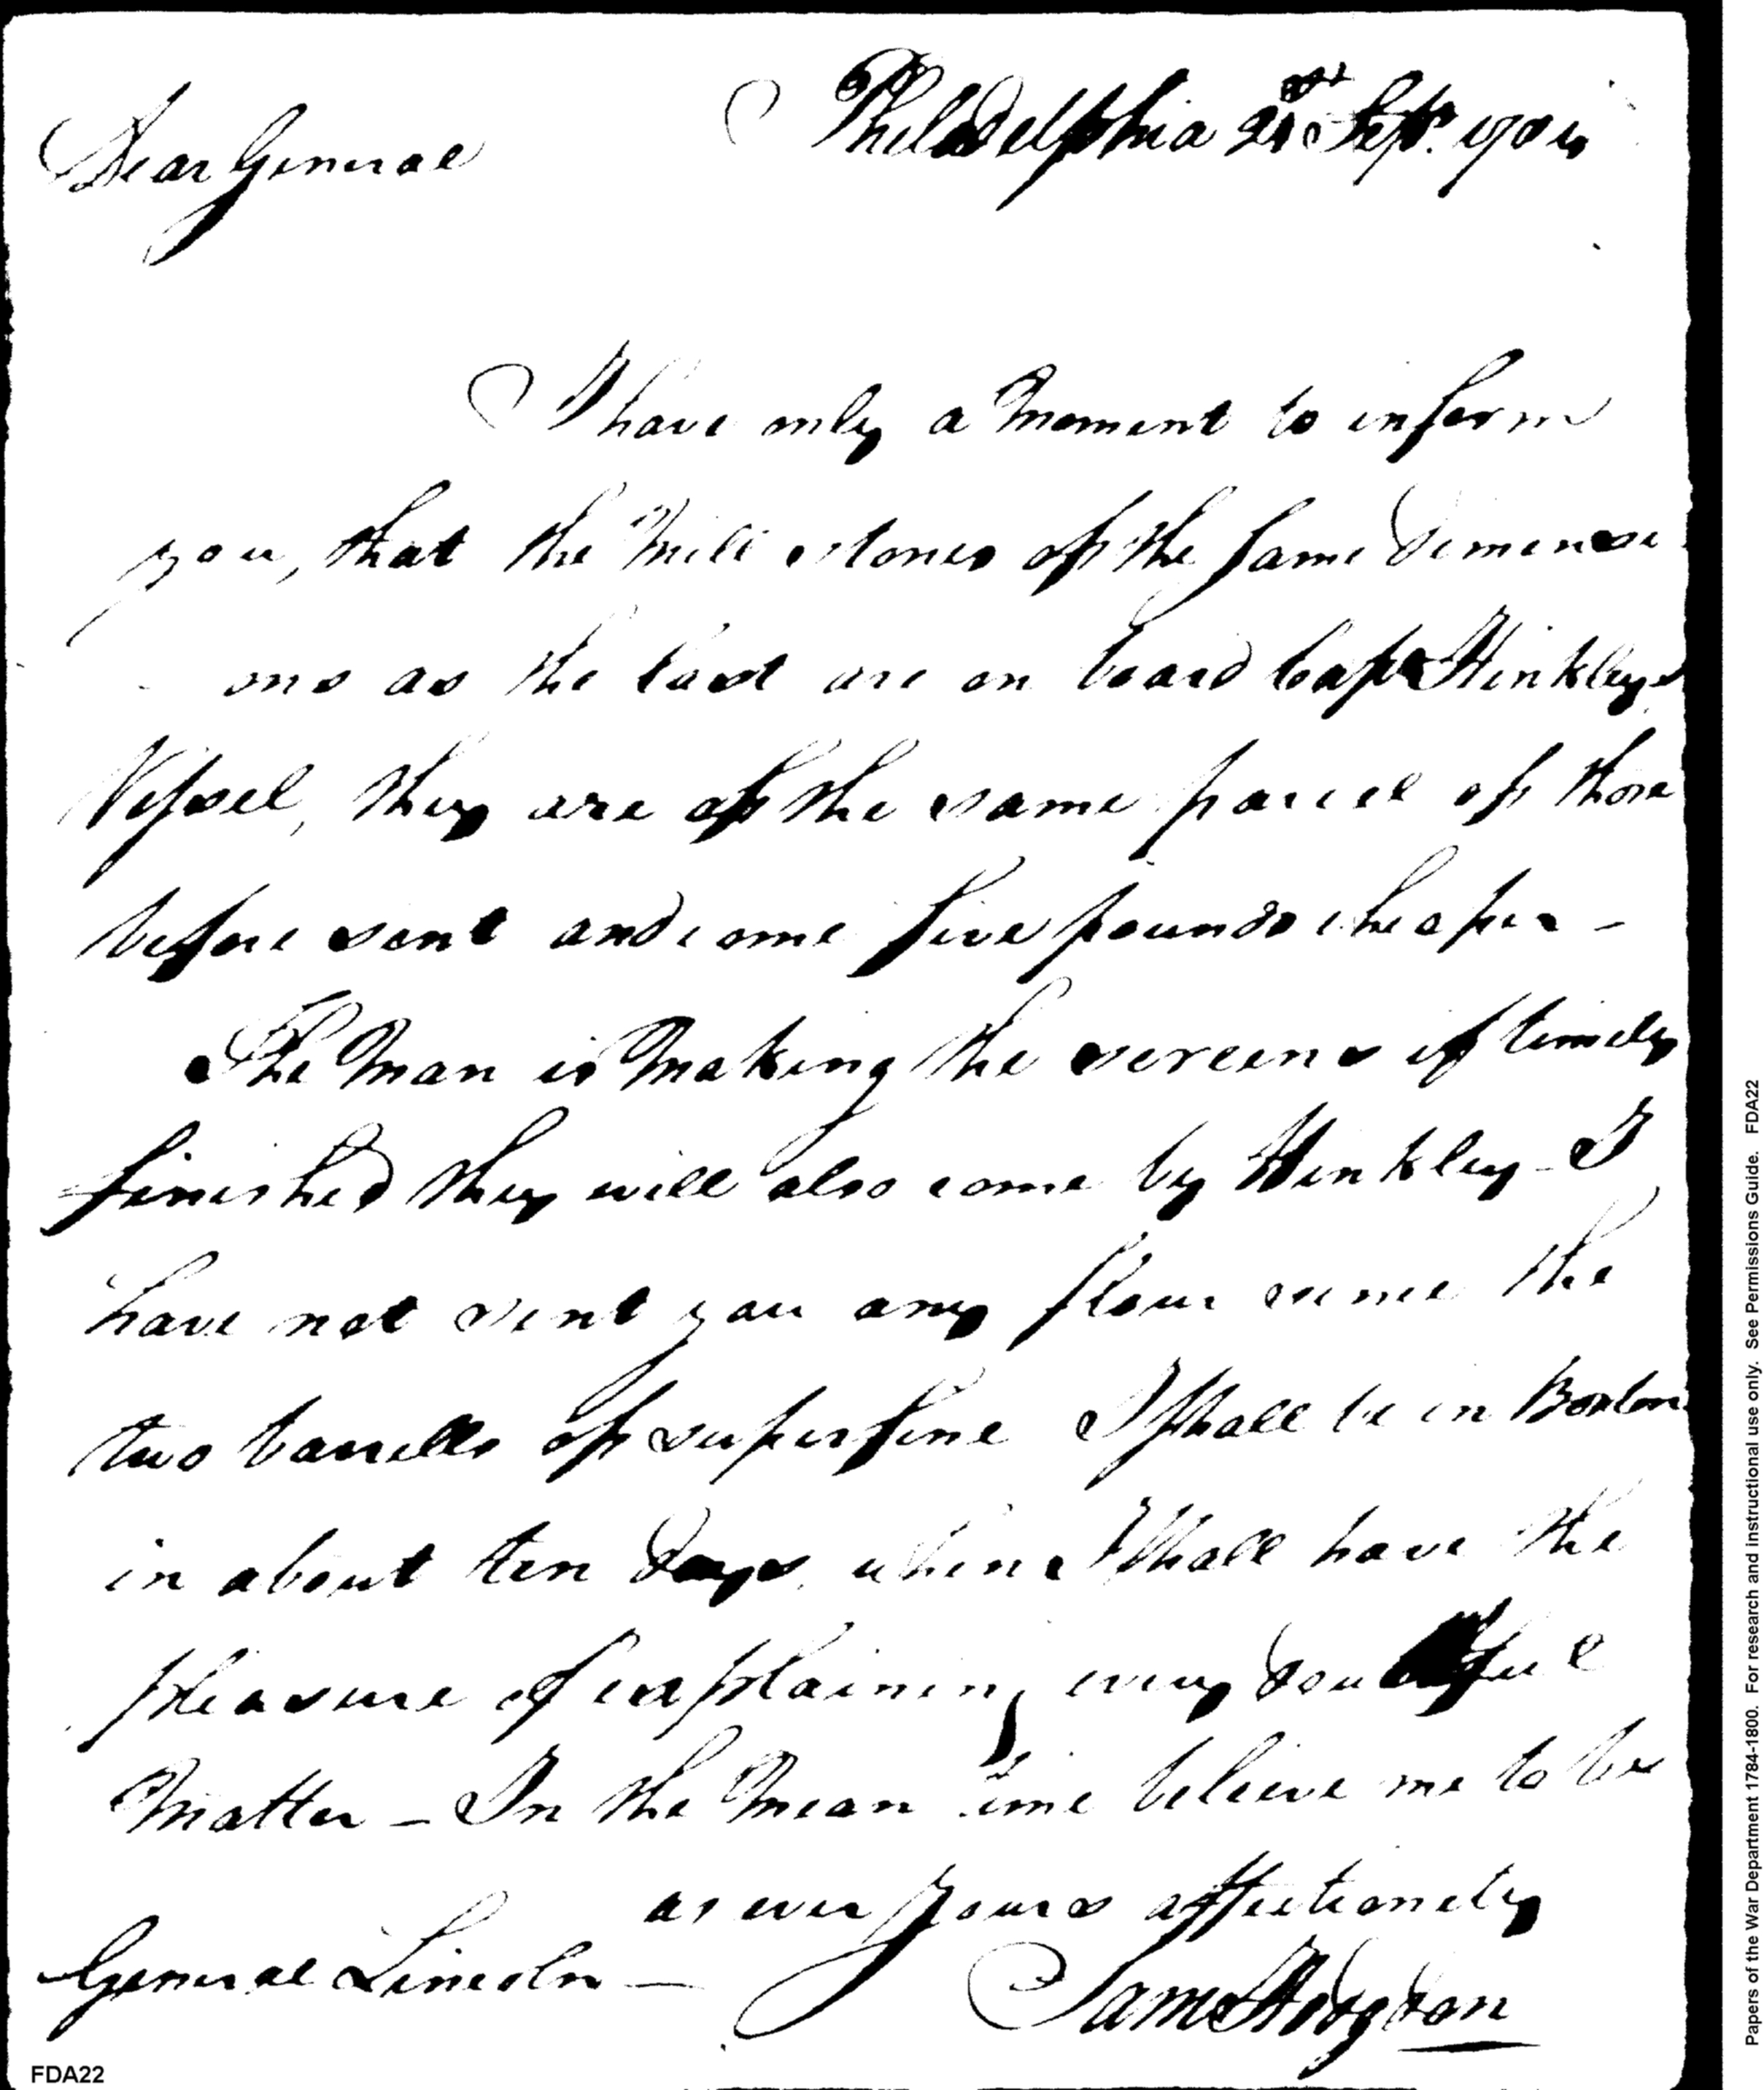 Philadelphia 21st Sept.
Dear General
I have only a Moment to inform
you, that the Mill stones of the same Dimensi
ons as the last are on board Capt Hinkleys
Vessel, they are of the same parcel of those
before sent and come five pounds cheaper —
The Man is Making the screens if timely
finished they will also come by Hinkley — I
have not sent you any flour since the
two barrells of superfine I shall be in Boston
in about ten Days, when I shall have the
pleasure of explaining every doubtful
Matter — In the Mean time believe me to be
as ever yours affectionately
General Lincoln —
Saml Hodgdon
FDA22
Papers of the War Department 1784-1800. For research and instructional use only. See Permissions Guide. FDA22